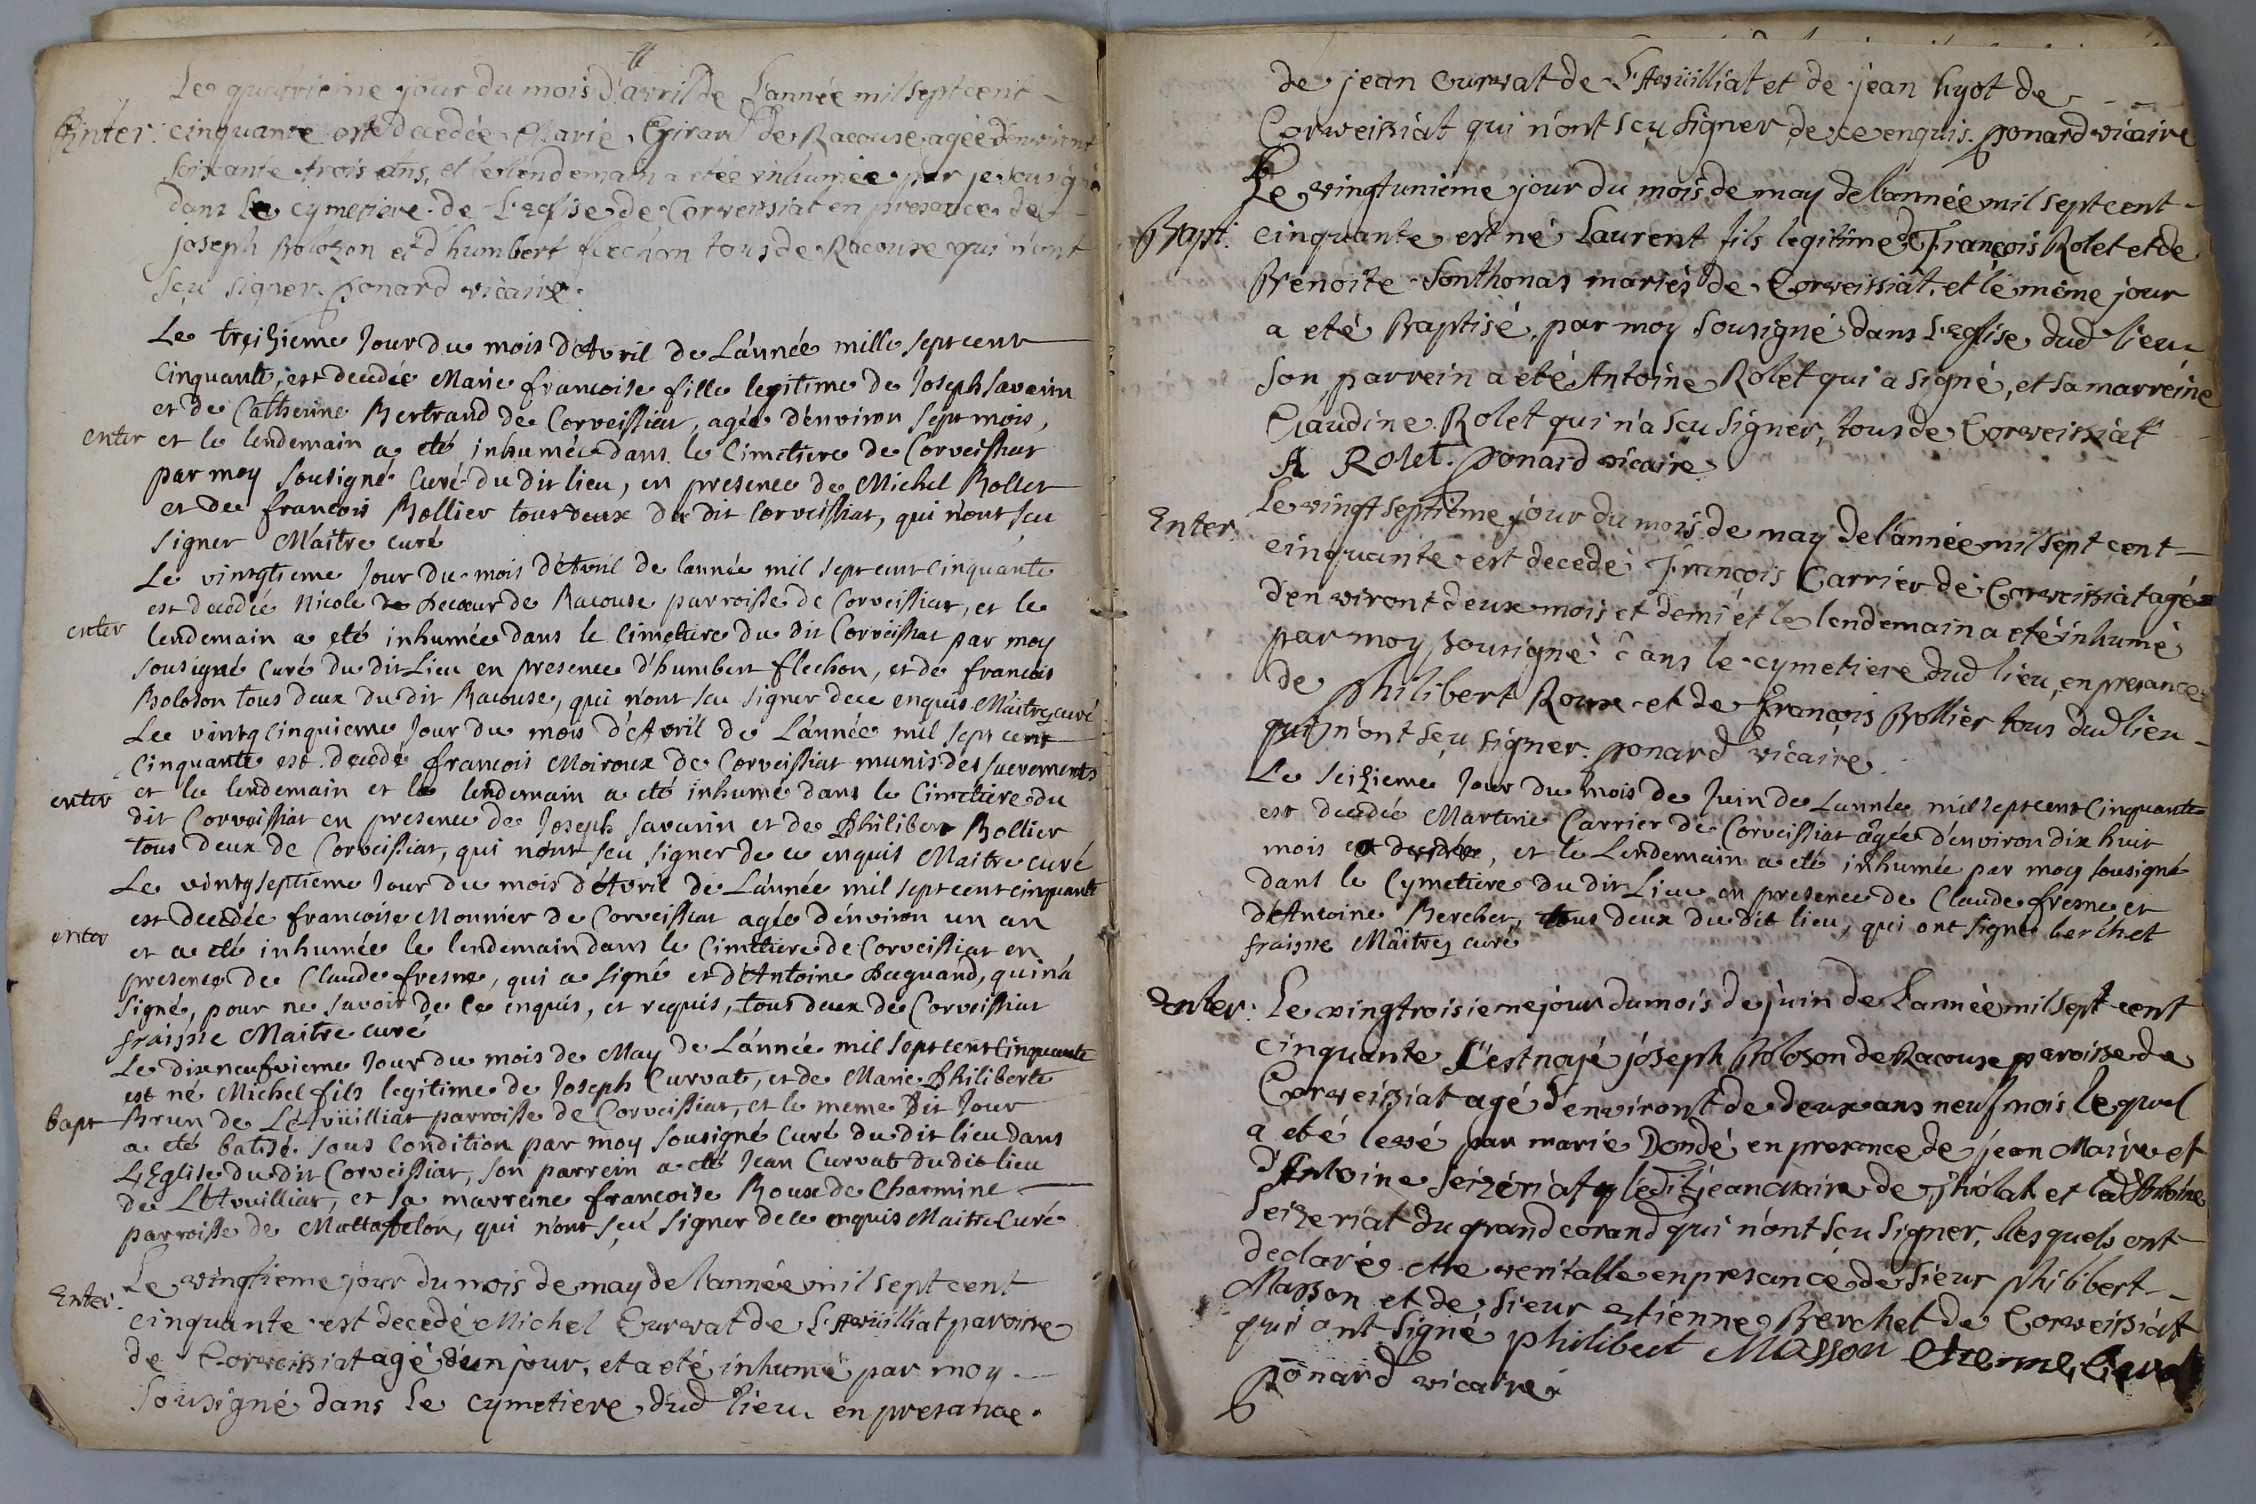 Le quatrieme jour du mois d'avril de L'année mil sept cent
Enter: cinquante est decedée Marie Girard de Racouse agée d'environt
soixante trois ans, et le lendemain a etée inhumée par je sousigné
dans le cymetiere de L'Eglise de Corveissiat en presance de
joseph Bolozon et d'humbert flechon tous de Racouse qui n'ont
sçu signer. ponard vicaire.
Le treizieme Jour du mois d'Avril de L'année mille sept cent
Cinquante, est decedée Marie francoise fille legitime de Joseph Savarin
et de Catherine Bertrand de Corveissiat, agée d'environ sept mois,
enter et le lendemain a eté inhumée dans le Cimetiere de Corveissiat
par moy sousigné Curé du dit lieu, en presence de Michel Rollet
et de francois Bollier tous deux du dit Corveissiat, qui n'ont sçu
signer Maître curé
Le vintgtieme Jour du mois d'Avril de lannée mil sept cent cinquante
est decedée Nicole Decœur de Racouse parroisse de Corveissiat, et le
enter lendemain a eté inhumée dans le Cimetiere du dit Corveissiat par moy
sousigné Curé du dit Lieu en presence d'humbert flechon, et de francois
Bolozon tous deux du dit Racouse, qui n'ont sçu signer de ce enquis Maitre curé
Le vintg Cinquieme Jour du mois d'Avril de L'année mil sept cent
Cinquante est decedé francois Moiroux de Corveissiat munis des sacrements
enter et le lendemain et le lendemain a eté inhumé dans le Cimetiere du
dit Corveissiat en presence de Joseph Savarin et de Philibert Bollier
tous deux de Corveissiat, qui n'ont sçu signer de ce enquis Maitre curé
Le vintg septieme Jour du mois d'Avril de L'année mil sept cent cinquante
est decedée francoise Monnier de Corveissiat agée d'environ un an
enter et a eté inhumée le lendemain dans le Cimetiere de Corveissiat en
presence de Claude fresne, qui a signé et d'Antoine Buguand, qui n'a
signé, pour ne savoir de ce enquis, et requis, tous deux de Corveissiat
fraisne Maitre curé
Le dixneufvieme Jour du mois de May de L'année mil sept cent Cinquante
est né Michel fils legitime de Joseph Curvat, et de Marie Philiberte
bapt Brun de L'Avuilliat parroisse de Corveissiat, et le meme Dit Jour
a eté batisé sous condition par moy sousigné Curé du dit lieu dans
L'Eglise du dit Corveissiat, son parrein a eté Jean Curvat du dit lieu
de L'Avuilliat, et sa marreine francoise Roux de Charmine
parroisse de Mattaffelon, qui n'ont sçu signer de ce enquis Maitre Curé
Enter. Le vingtieme jour du mois de may de l'année mil sept cent
cinquante est decedé Michel Curvat de L'Avuilliat paroisse
de Corveissiat agé d'un jour, et a eté inhumé par moy
sousigné dans le cymetiere dud lieu en presance
de jean Curvat de L'Avuilliat et de jean hyot de
Corveissiat qui n'ont sçu signer, de ce enquis. ponard vicaire
Le vingtunieme jour du mois de may de l'année mil sept cent
Bapt: cinquante est né Laurent fils légitime de François Rolet et de
Benoite Sonthonas mariés de Corveissiat, et le même jour
a eté Baptisé, par moy sousigné dans L'Eglise dud lieu
son parrein a eté Antoine Rolet qui a signé, et sa marreine
Claudine Rolet qui n'a sçu signer, tous de Corveissiat
A Rolet. ponard vicaire
Enter. Le vingt septieme jour du mois de may de l'année mil sept cent
cinquante est decedé François Carrier de Corveissiat agé
d'environt deux mois et demi et le lendemain a eté inhumé
par moy sousigné dans le cymetiere dud lieu, en presance
de philibert Roux et de François Bollier tous dud lieu
qui n'ont sçu signer. ponard vicaire.
Le seizieme Jour du mois de Juin de Lannée mil sept cent Cinquante
est decedée Martine Carrier de Corveissiat agée d'environ dix huit
mois, et le Lendemain a eté inhumée par moy sousigné
dans le Cymetiere du dit Lieu en presence de Claude fresne et
d'Antoine Berchet, tous deux du dit lieu, qui ont signé berchet
fraisne Maitre curé
Enter: Le vingtroisieme jour du mois de juin de L'année mil sept cent
cinquante s'est noyé joseph Bolozon de Racouse paroisse de
Corveissiat agé d'environt de deux ans neuf mois le quel
a eté levé par marie Dondé en presance de jean Maire et
d'Antoine Seizériat ledit jean Maire de et led Antoine
Seizeriat du grand corand qui n'ont sçu signer, les quels ont
declaré etre veritable en presance de sieur philibert
Masson et de sieur etienne Berchet de Corveissiat
qui ont signé philibert Masson
ponard vicaire